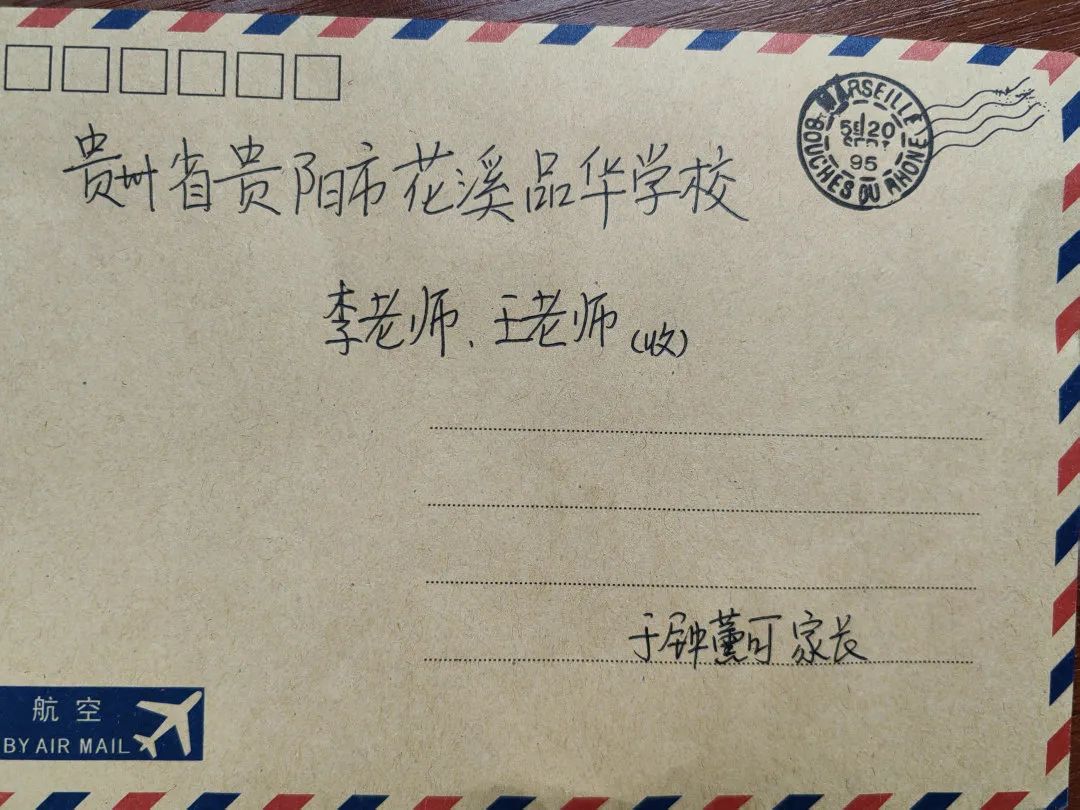 MARSEILLE
5H 20
95
BOUCHES DU RHONE
贵州省贵阳市花溪品华学校
李老师、王老师(收)
于钟薰可家长
航空
BY AIR MAIL